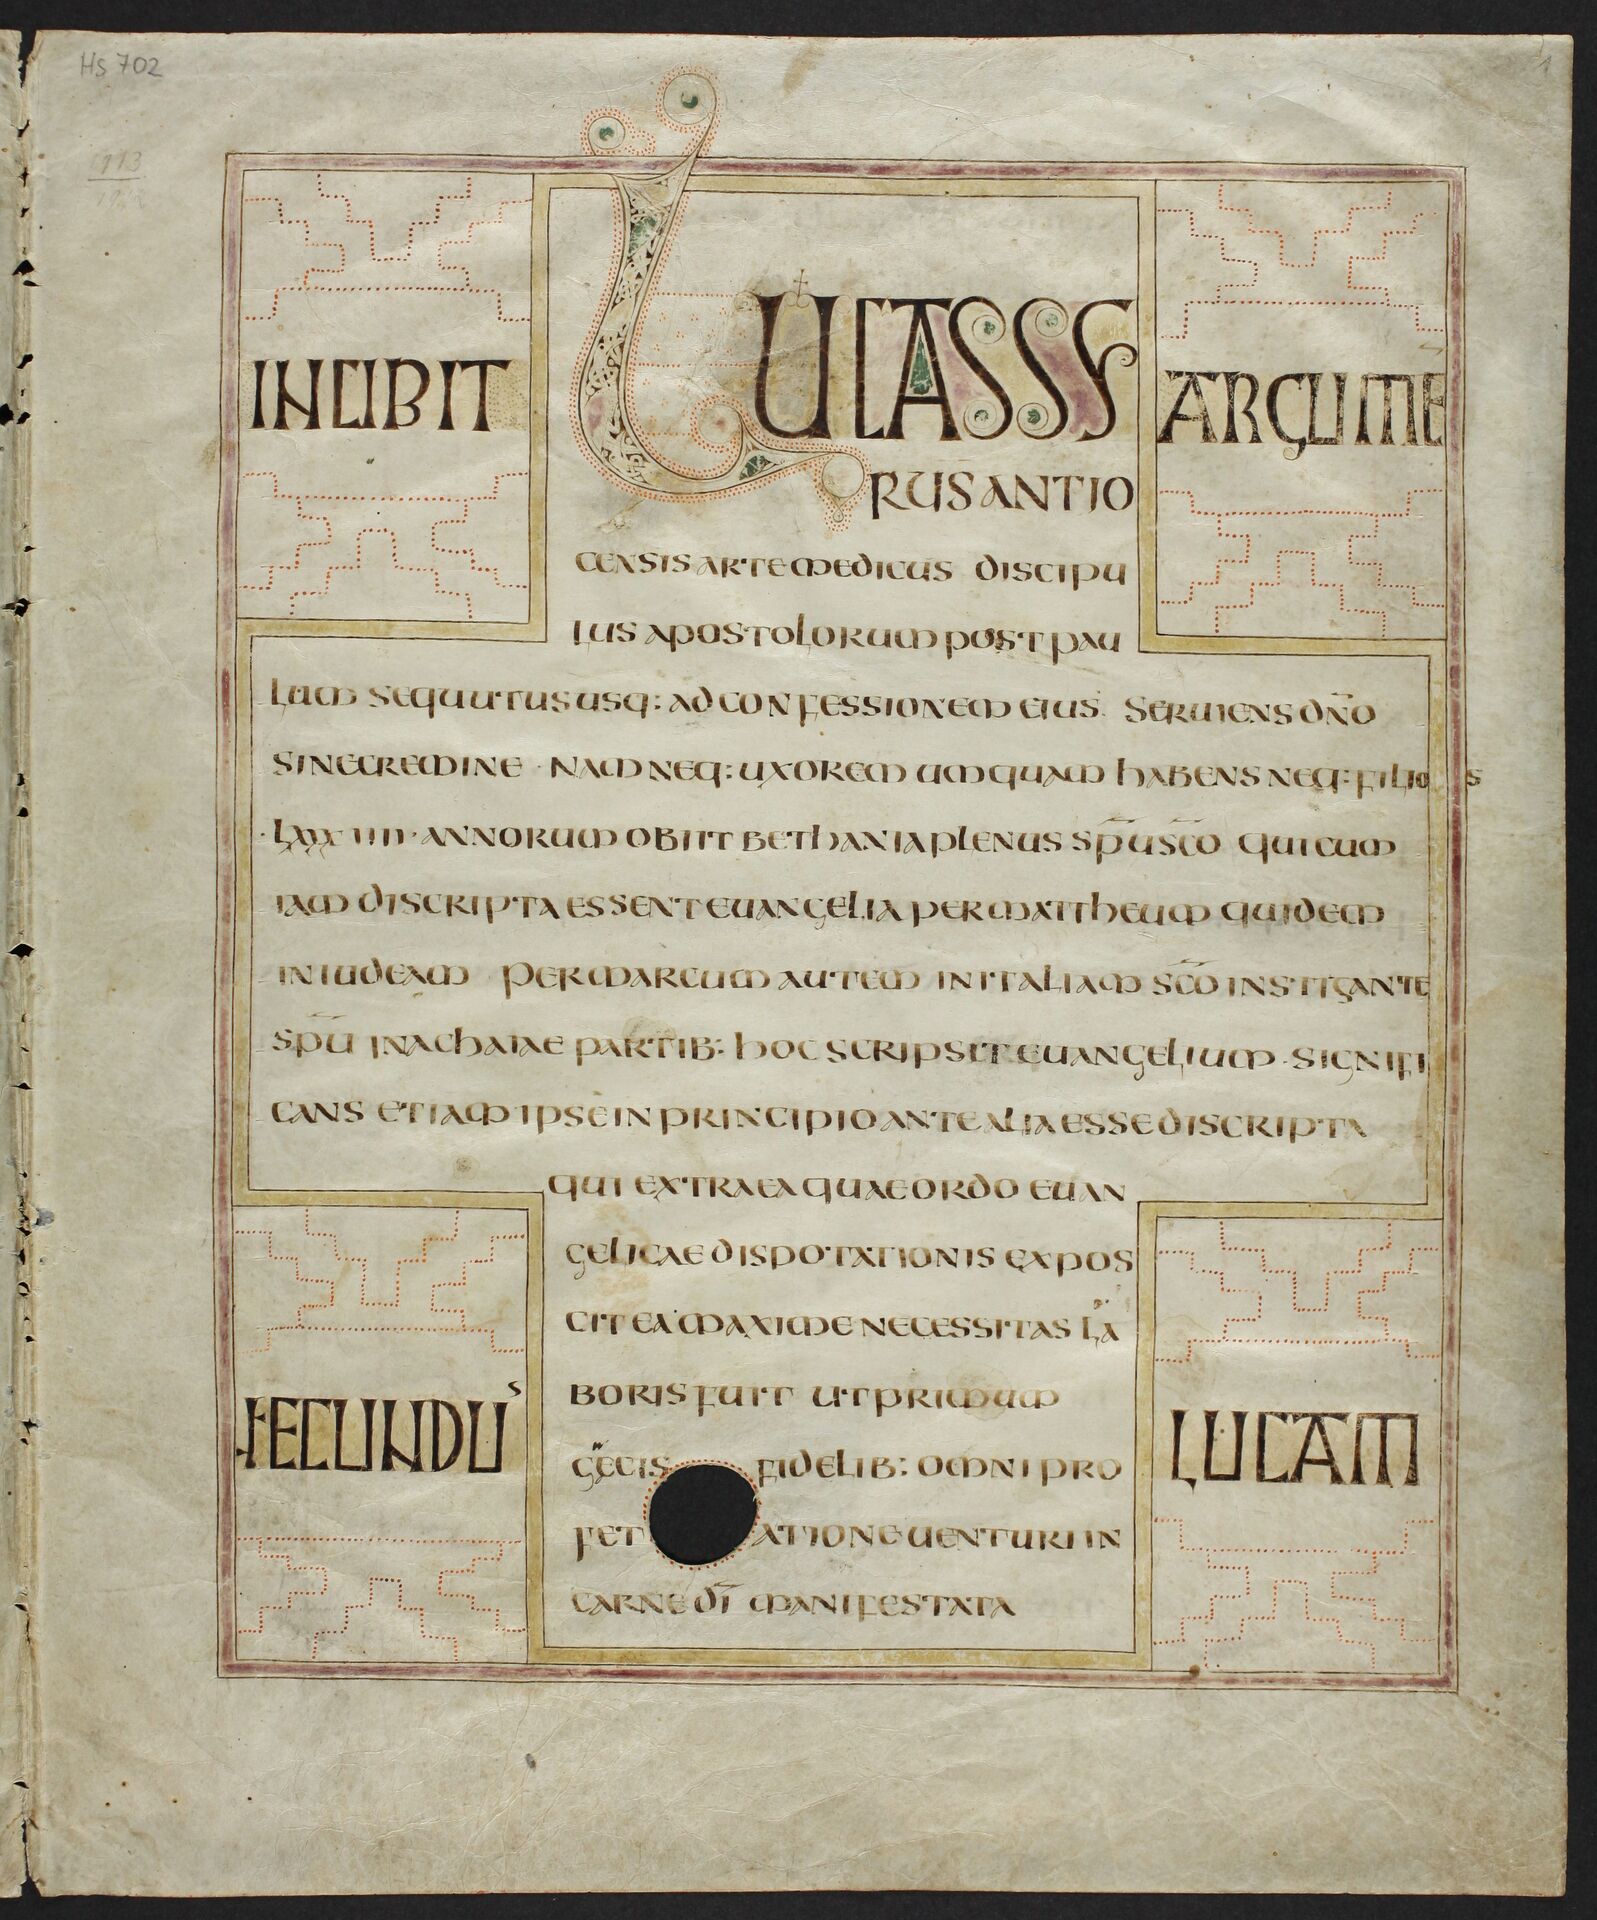 Hs 702
1
INCIBIT
ARGUMĒ
LUCAS SY
RUS ANTIO
CENSIS ARTE MEDICUS DISCIPU
LUS APOSTOLORUM POST PAU
LUM SEQUUTUS USQ: AD CONFESSIONEM EIUS SERUIENS DN̄O
SINE CREMINE · NAM NEQ: UXOREM UMQUAM HABENS NEQ: FILIOS
·LXXIIII· ANNORUM OBIIT BETHANIA PLENUS SP̄U SC̄O QUI CUM
IAM DISCRIPTA ESSENT EUANGELIA PER MATTHEUM QUIDEM
IN IUDEAM PER MARCUM AUTEM IN ITALIAM SC̄O INSTIGANTE
SP̄U IN ACHAIAE PARTIB: HOC SCRIPSIT EUANGELIUM · SIGNIFI
CANS ETIAM IPSE IN PRINCIPIO ANTE ALIA ESSE DISCRIPTA
QUI EXTRA EA QUAE ORDO EUAN
GELICAE DISPOTATIONIS EXPOS
CIT EA MAXIME NECESSITAS LA
BORIS FUIT UT PRIMUM
GECIS FIDELIB: OMNI PRO
FETATIONE UENTURI IN
CARNE DĪ MANIFESTATA
SECUNDUS
LUCAM